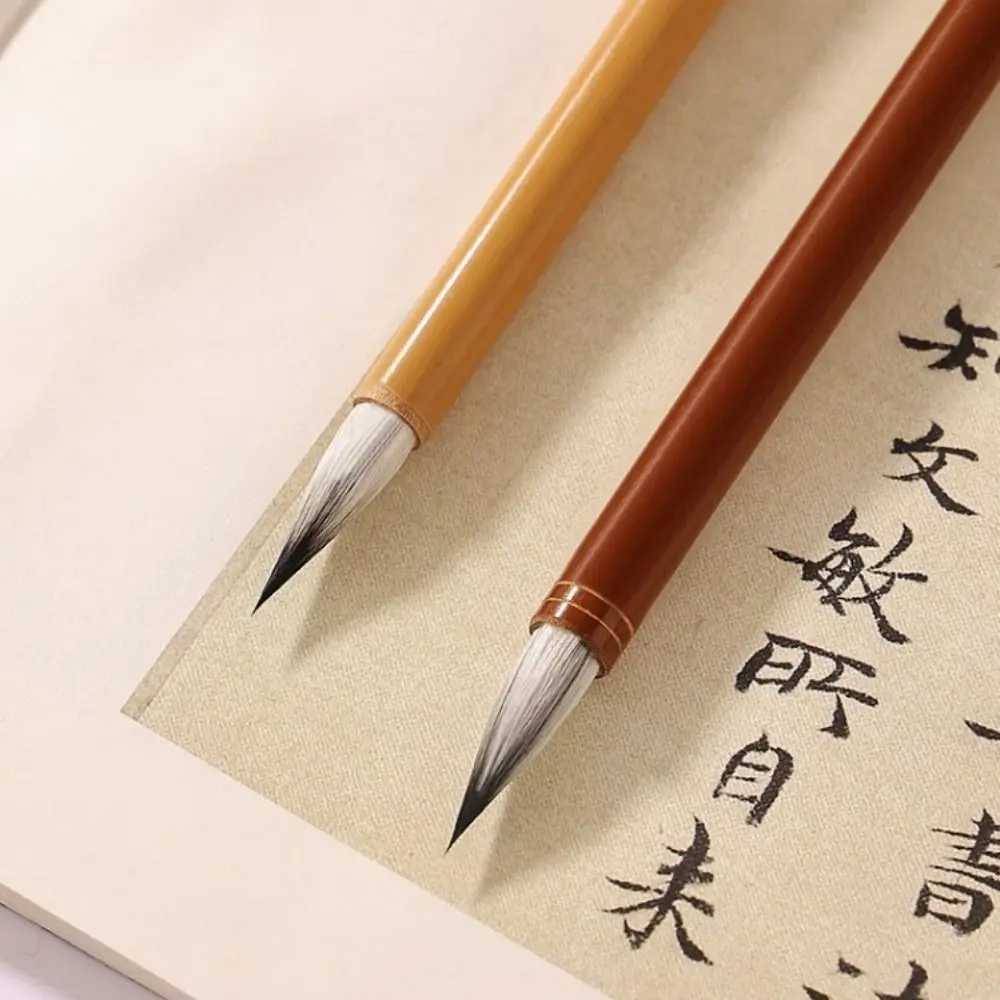 書
知文敏所自来